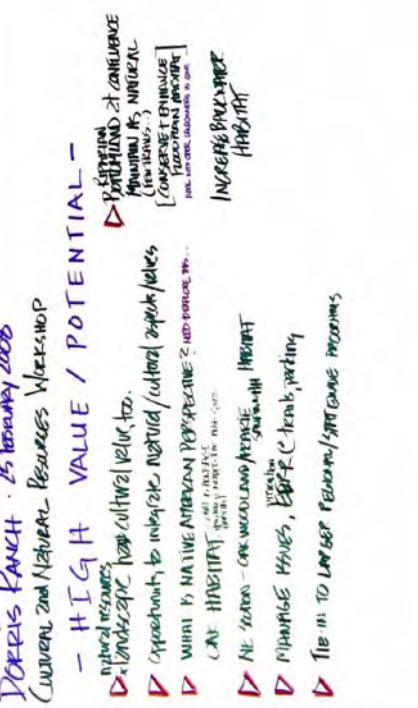 DORRIS RANCH · 25 FEBRUARY 2008
CULTURAL and NATURAL RESOURCES WORKSHOP
- HIGH VALUE / POTENTIAL -
natural resources
landscape have cultural value, too.
Opportunity to integrate natural/cultural aspects/values
WHAT IS NATIVE AMERICAN PERSPECTIVE? NEED TO EXPLORE THIS...
OAK HABITAT
NE - OAK WOODLAND/PRAIRIE HABITAT
MANAGE ISSUES, trails, parking
TIE-IN TO LARGER REGIONAL/STATEWIDE PROGRAMS
RIPARIAN
BOTTOMLAND at CONFLUENCE
MAINTAIN AS NATURAL
(FEW TRAILS...)
[CONSERVE + ENHANCE
FLOODPLAIN HABITAT]
INCREASE BACKWATER
HABITAT